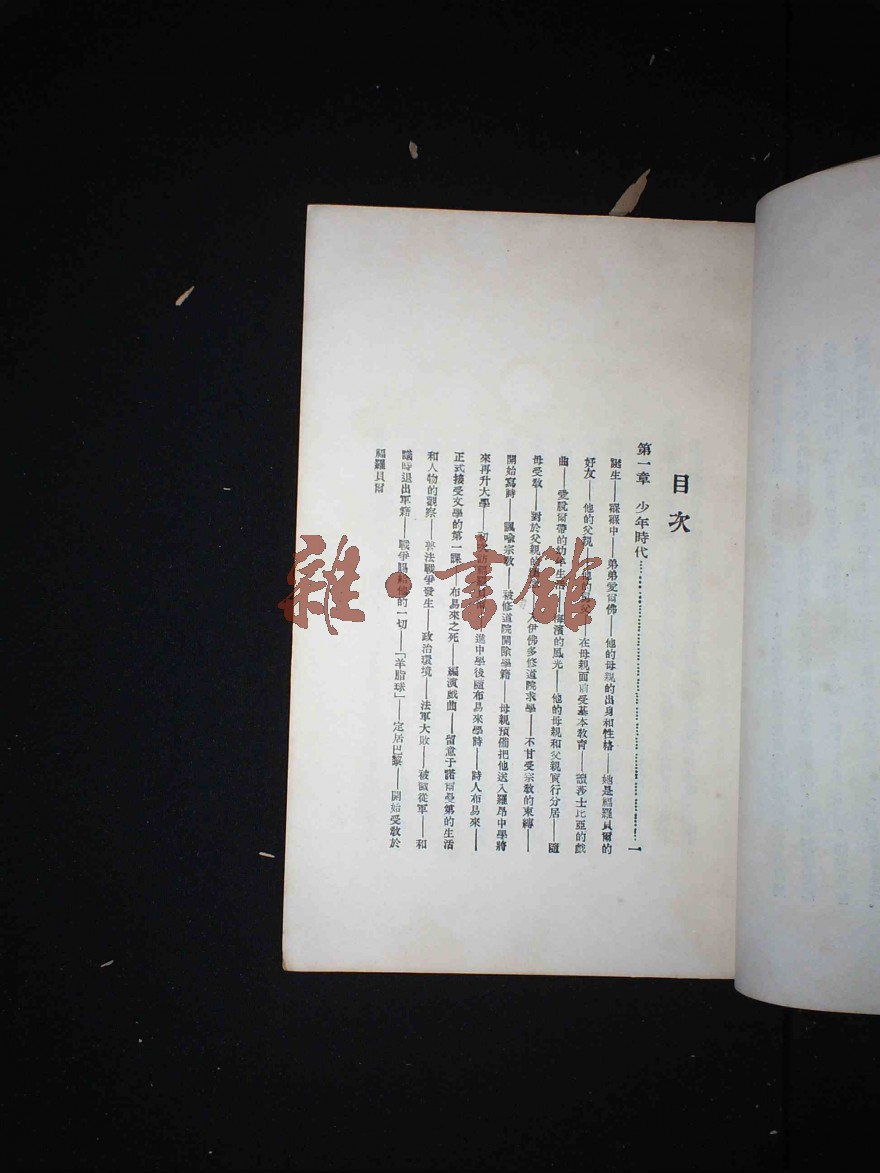 目次
第一章 少年時代……一
誕生——襁褓中——弟弟愛爾佛——他的母親的出身和性格——她是福羅貝爾的
好友——他的父親——他的——在母親面前受基本教育——讀莎士比亞的戲
曲——愛脫爾帶的幼年生——海濱的風光——他的母親和父親實行分居——隨
母受教——對於父親的——入伊佛多修道院求學——不甘受宗教的束縛——
開始寫詩——諷喻宗教——被修道院開除學籍——母親預備把他送入羅昂中學將
來再升大學——初次——進中學後隨布易來學詩——詩人布易來——
正式接受文學的第一課——布易來之死——編演戲曲——留意于諾爾曼第的生活
和人物的觀察——普法戰爭發生——政治環境——法軍大敗——被徵從軍——和
議時退出軍籍——戰爭賜給他的一切——「羊脂球」——定居巴黎——開始受教於
福羅貝爾
雜·書館